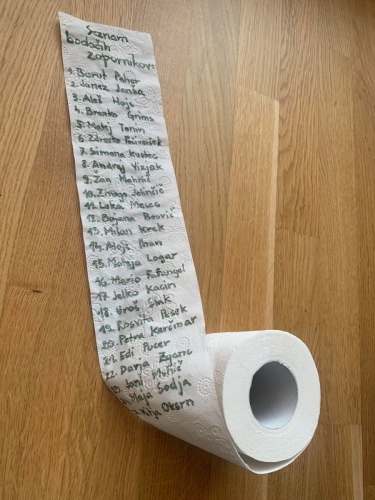 Seznam
bodočih
zapornikov:
1. Borut Pahor
2. Janez Janša
3. Aleš Hojs
4. Branko Grims
5. Matej Tonin
6. Zdravko Počivalšek
7. Simona Kustec
8. Andrej Vizjak
9. Žan Mahnič
10. Zmago Jelinčič
11. Luka Mesec
12. Bojana Beović
13. Milan Krek
14. Alojz Ihan
15. Mateja Logar
16. Mario Fafangel
17. Jelko Kacin
18. Uroš Slak
19. Rosvita Pesek
20. Petra Kerčmar
21. Edi Pucer
22. Darja Zgonc
Joni Muhič
Maja Sodja
Katja